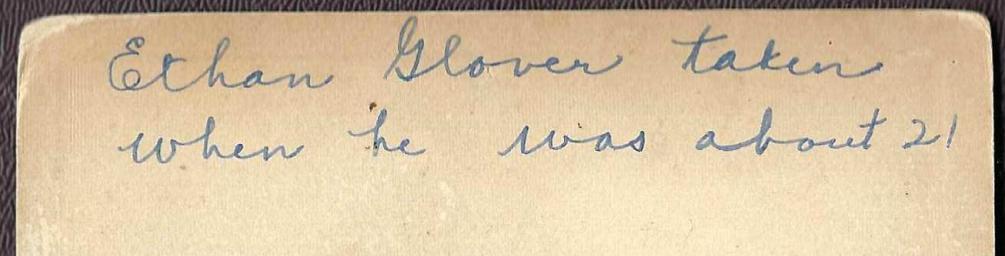 Ethan Glover taken
when he was about 21